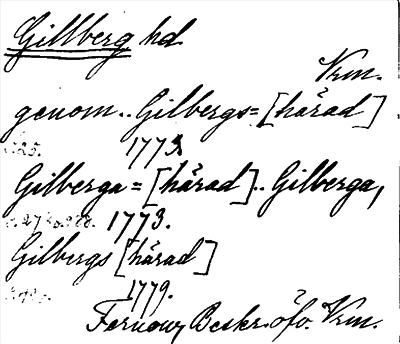 Gillberg hd.
Vrm.
genom.. Gilbergs=[härad]
s. 25. 1773.
Gilberga=[härad].. Gilberga,
1773.
Gilbergs [härad]
1779.
Fernow, Beskr. öfv. Vrm.